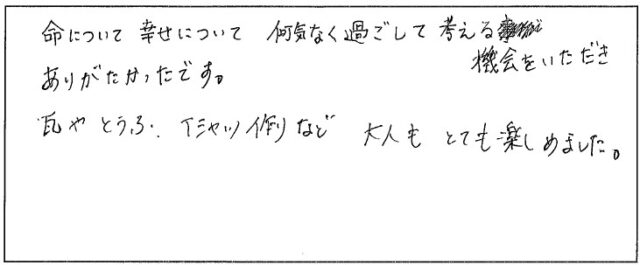 命について 幸せについて 何気なく過ごして 考える
機会をいただき
ありがたかったです。
瓦や とうふ、Tシャツ作りなど 大人も とても楽しめました。